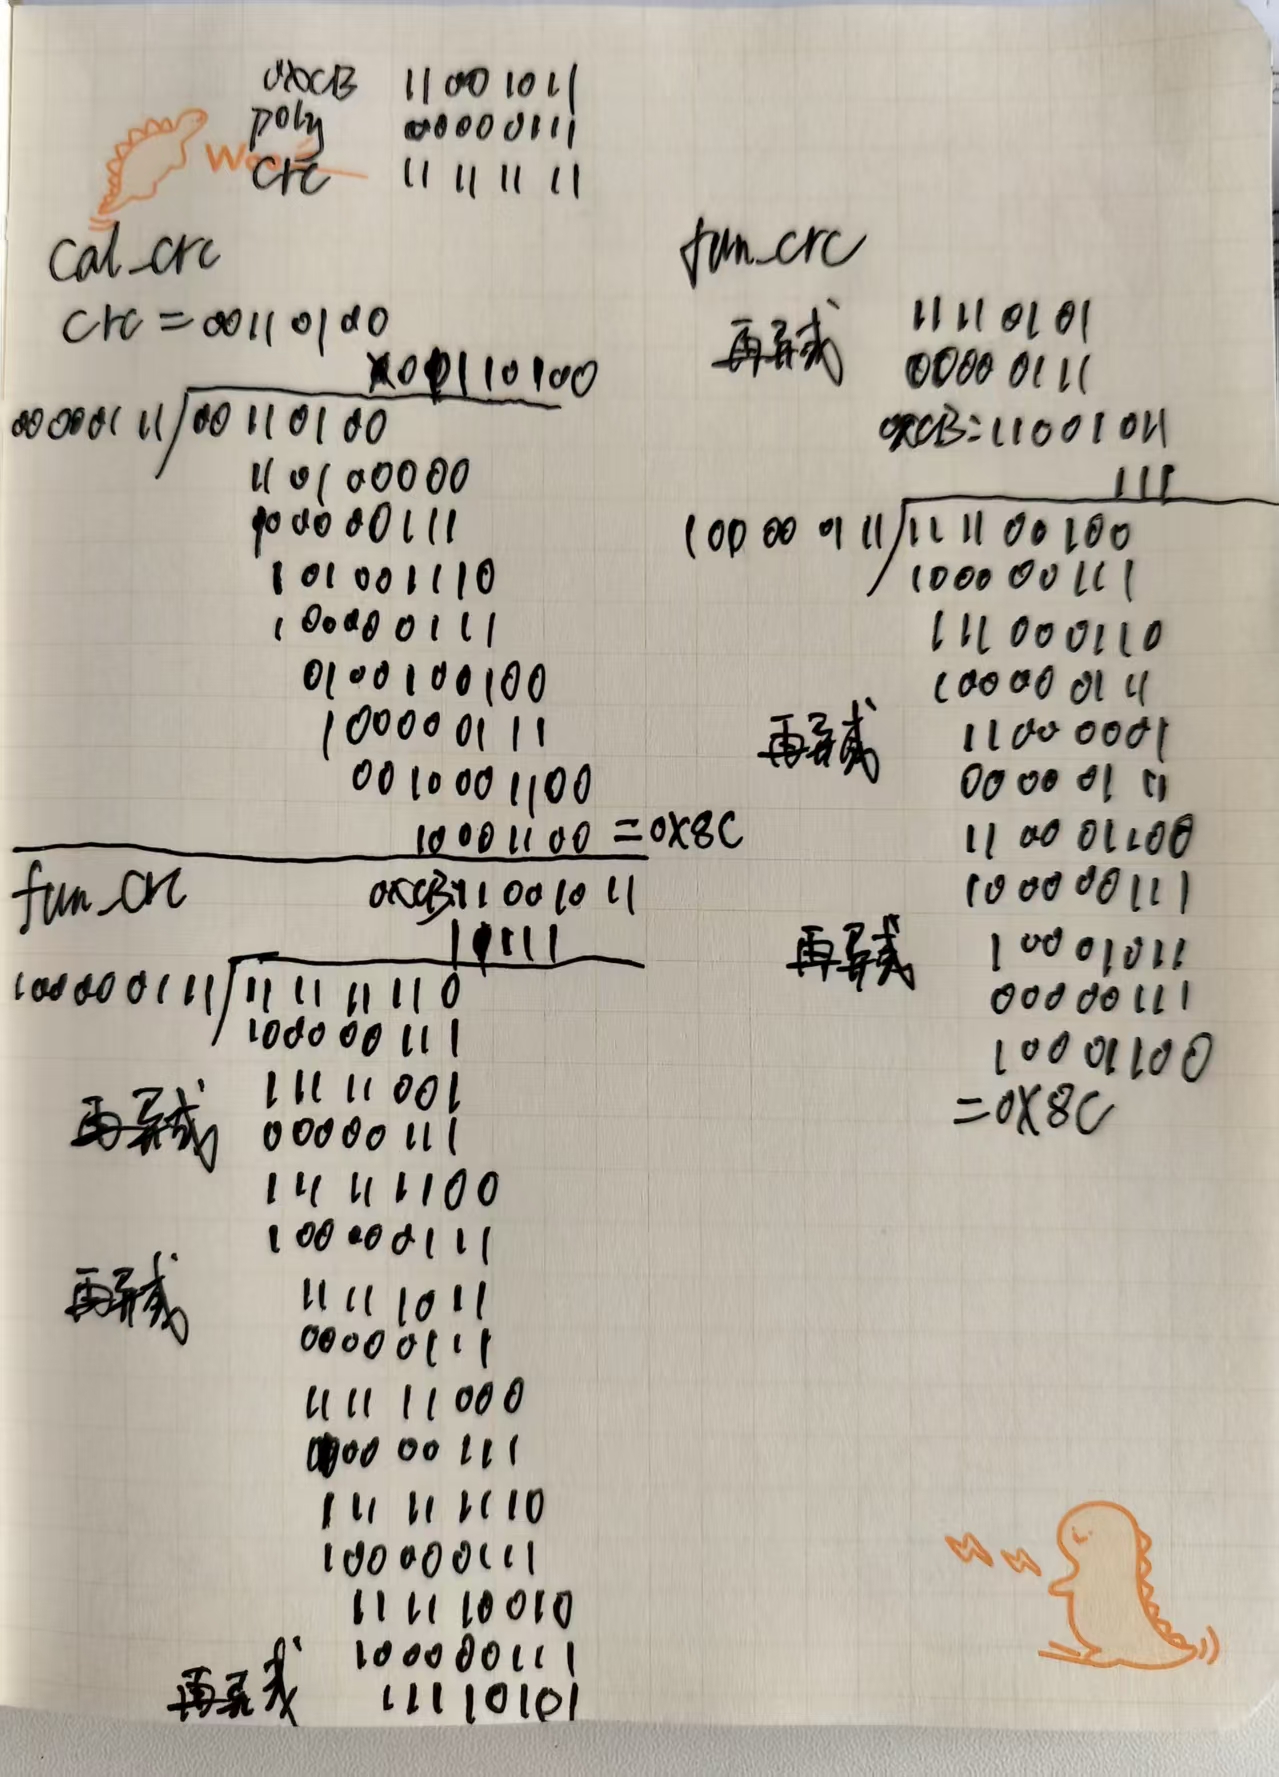 0xCB 11001011
poly 00000111
Crc 11 11 11 11
Cal_crc
Crc = 00110100
00110100
00000111 00110100
11 01 00000
100000111
1 01 001110
1 00000111
0100100100
100000111
0010001100
10001100 = 0X8C
fun_crc 11001011
1 111
100000111 11 11 11 110
100000111
111 11 001
再异或 00000111
1 11 11 1100
1 00000111
再异或 11 11 1011
00000111
11 11 11000
0000 00 111
1 11 11 1110
100000111
11 11 10010
100000111
再异或 11110101
fun_crc
11 11 01 01
再异或 0000 0111
0XCB=11001011
111
100000111 11 11 00100
100000111
111 000110
100000111
再异或 1100 0001
00000111
11 00 01100
100000111
再异或 1 00 01011
00000111
1 00 01100
=0X8C